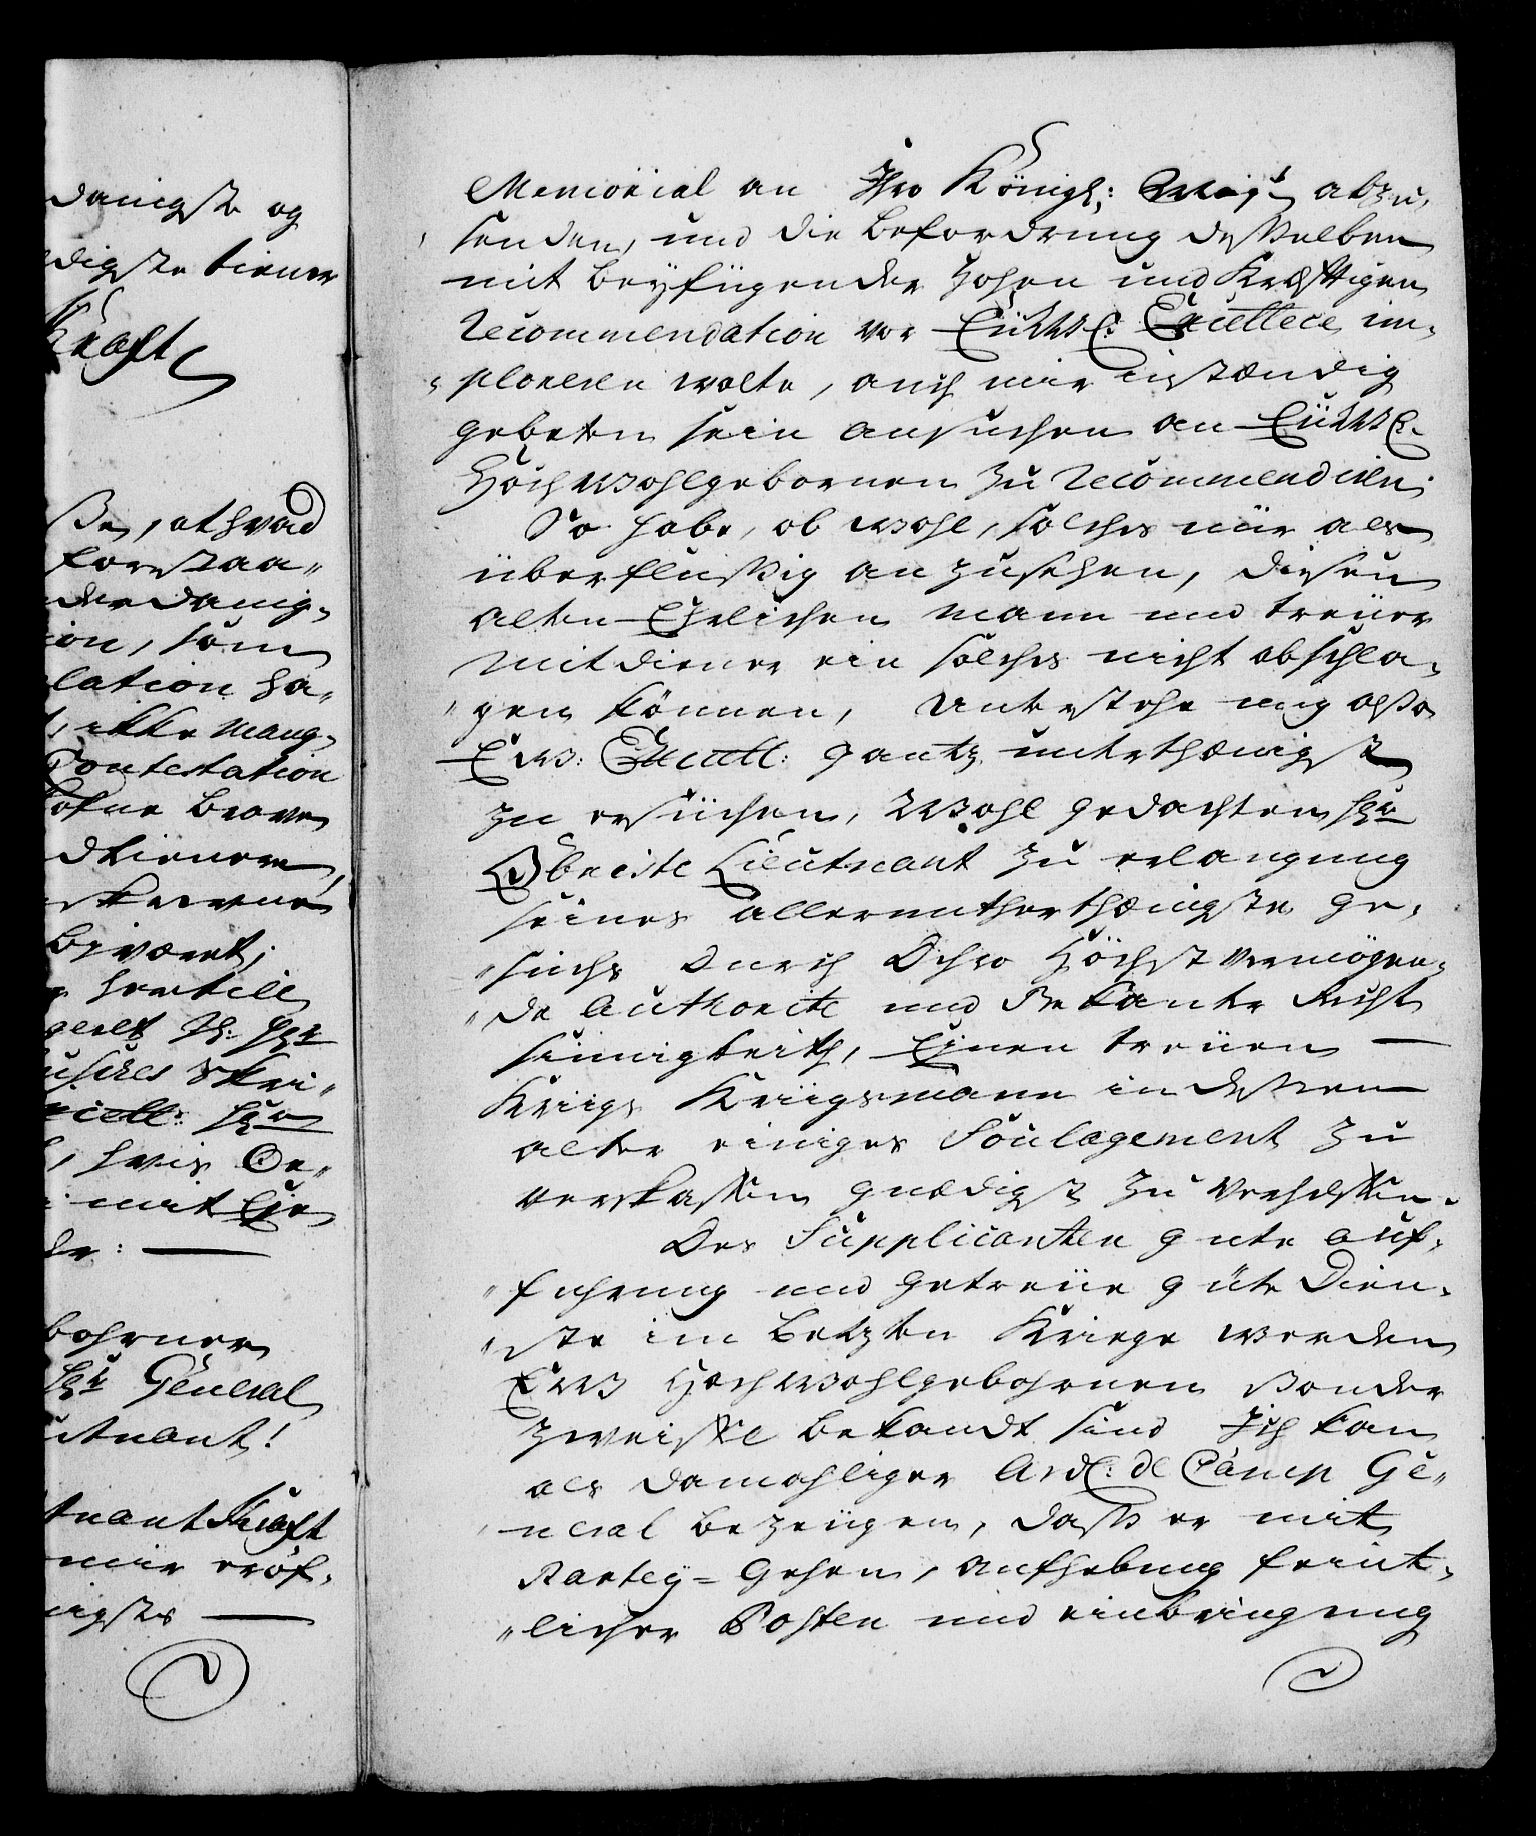 danigste og
digste tiener
Kraft
ße, at hvad
forstaa„
derdanig„
ion, som
lation ha„
, ikke mang„
Contestation
Brave
dtienere,
bevaret;
hertill
geelt H: Hr
Skri„
Excell: Hr
, hvis Ge„
mit Eje
de:
bohrner
Hr General
utnant!
tnant Kraft
mir eröf„
nigstes
Memorial an Ihro Königl: Mayt abzu„
senden, und die Befordrung desselben
mit beyfügender hohen und Kræfftigen
Recommendation vor Eüwre Excellece im„
„ploreren wolte, auch mir instændig
gebeten sein ansuchen an Eüwre
Hochwohlgebornen zu recommendiren;
So habe, ob wohl, solches nür als
überflüssig anzusehen, diesen
alten Ehrlichen mann und treüer
Mitdiener ein solches nicht abschla„
„gen können, Unterstehe mig also
Ew: Excell: gantz unterthænigst
zu ersüchen, Wohlgedachten Hr
Obriste Lieutnant zu erlangung
seines allerunterthænigsten Ge„
„suchs durch Dehro Höchstvermögen„
„de Authorite und Bekante Recht
sinnigkeith, Einen treüen —
Kriigs Kriigsmann in dessen
alter einiges Soulagement zu
verskaffen gnædigst zu verhelffen.
Des Supplicanten gute auf„
„fuhrung und getreüe güte Dien„
„ste im letzten Kriege werden
Ew Hochwohlgebohrnen sonder
zweiffel bekandt sind Ich kan
als damahliger Aid: de Camp Ge„
„neral bezeügen, daß er mit
Partey=Gehen, Aufhebung feint„
„licher Posten und einbringung